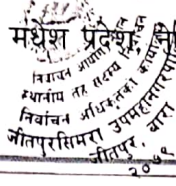 मधेश प्रदेश, 
निर्वाचन आयोग
स्थानीय तह सदस्य
निर्वाचन अधिकृतको कार्यालय
जीतपुरसिमरा उपमहानगरपा
जीतपुर, बारा
२०७९